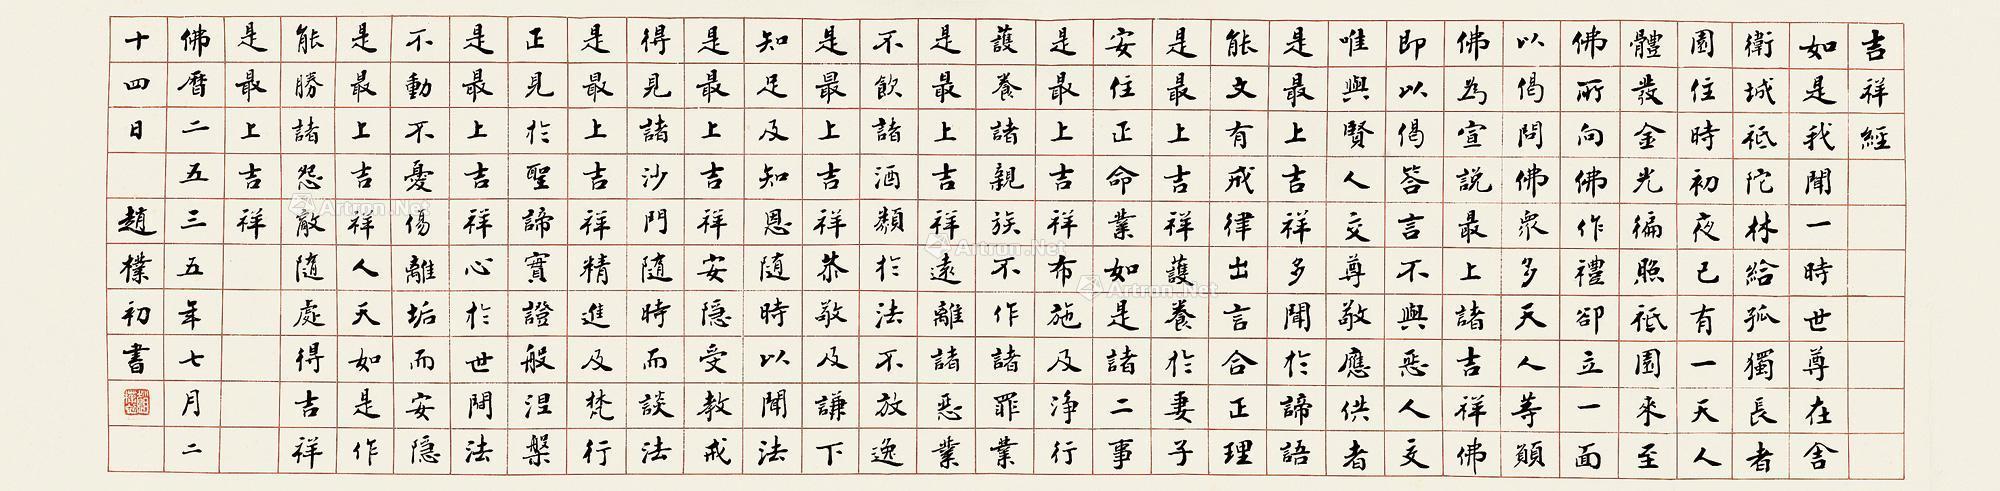 吉祥經
如是我聞一時世尊在舍
衛城祗陀林給孤獨長者
園住時初夜已有一天人
體發金光徧照祗園來至
佛所向佛作禮卻立一面
以偈問佛眾多天人等願
佛為宣說最上諸吉祥佛
即以偈答言不與惡人交
唯與賢人交尊敬應供者
是最上吉祥多聞於諦語
能文有戒律出言合正理
是最上吉祥護養於妻子
安住正命業如是諸二事
是最上吉祥布施及淨行
護養諸親族不作諸罪業
是最上吉祥遠離諸惡業
不飲諸酒類於法不放逸
是最上吉祥恭敬及謙下
知足及知恩隨時以聞法
是最上吉祥安隱受教戒
得見諸沙門隨時而談法
是最上吉祥精進及梵行
正見於聖諦實證般涅槃
是最上吉祥心於世間法
不動不憂傷離垢而安隱
是最上吉祥人天如是作
能勝諸怨敵隨處得吉祥
是最上吉祥
佛曆二五三五年七月二
十四日 趙樸初書
Artron.Net
Artron.Net
Artron.Net